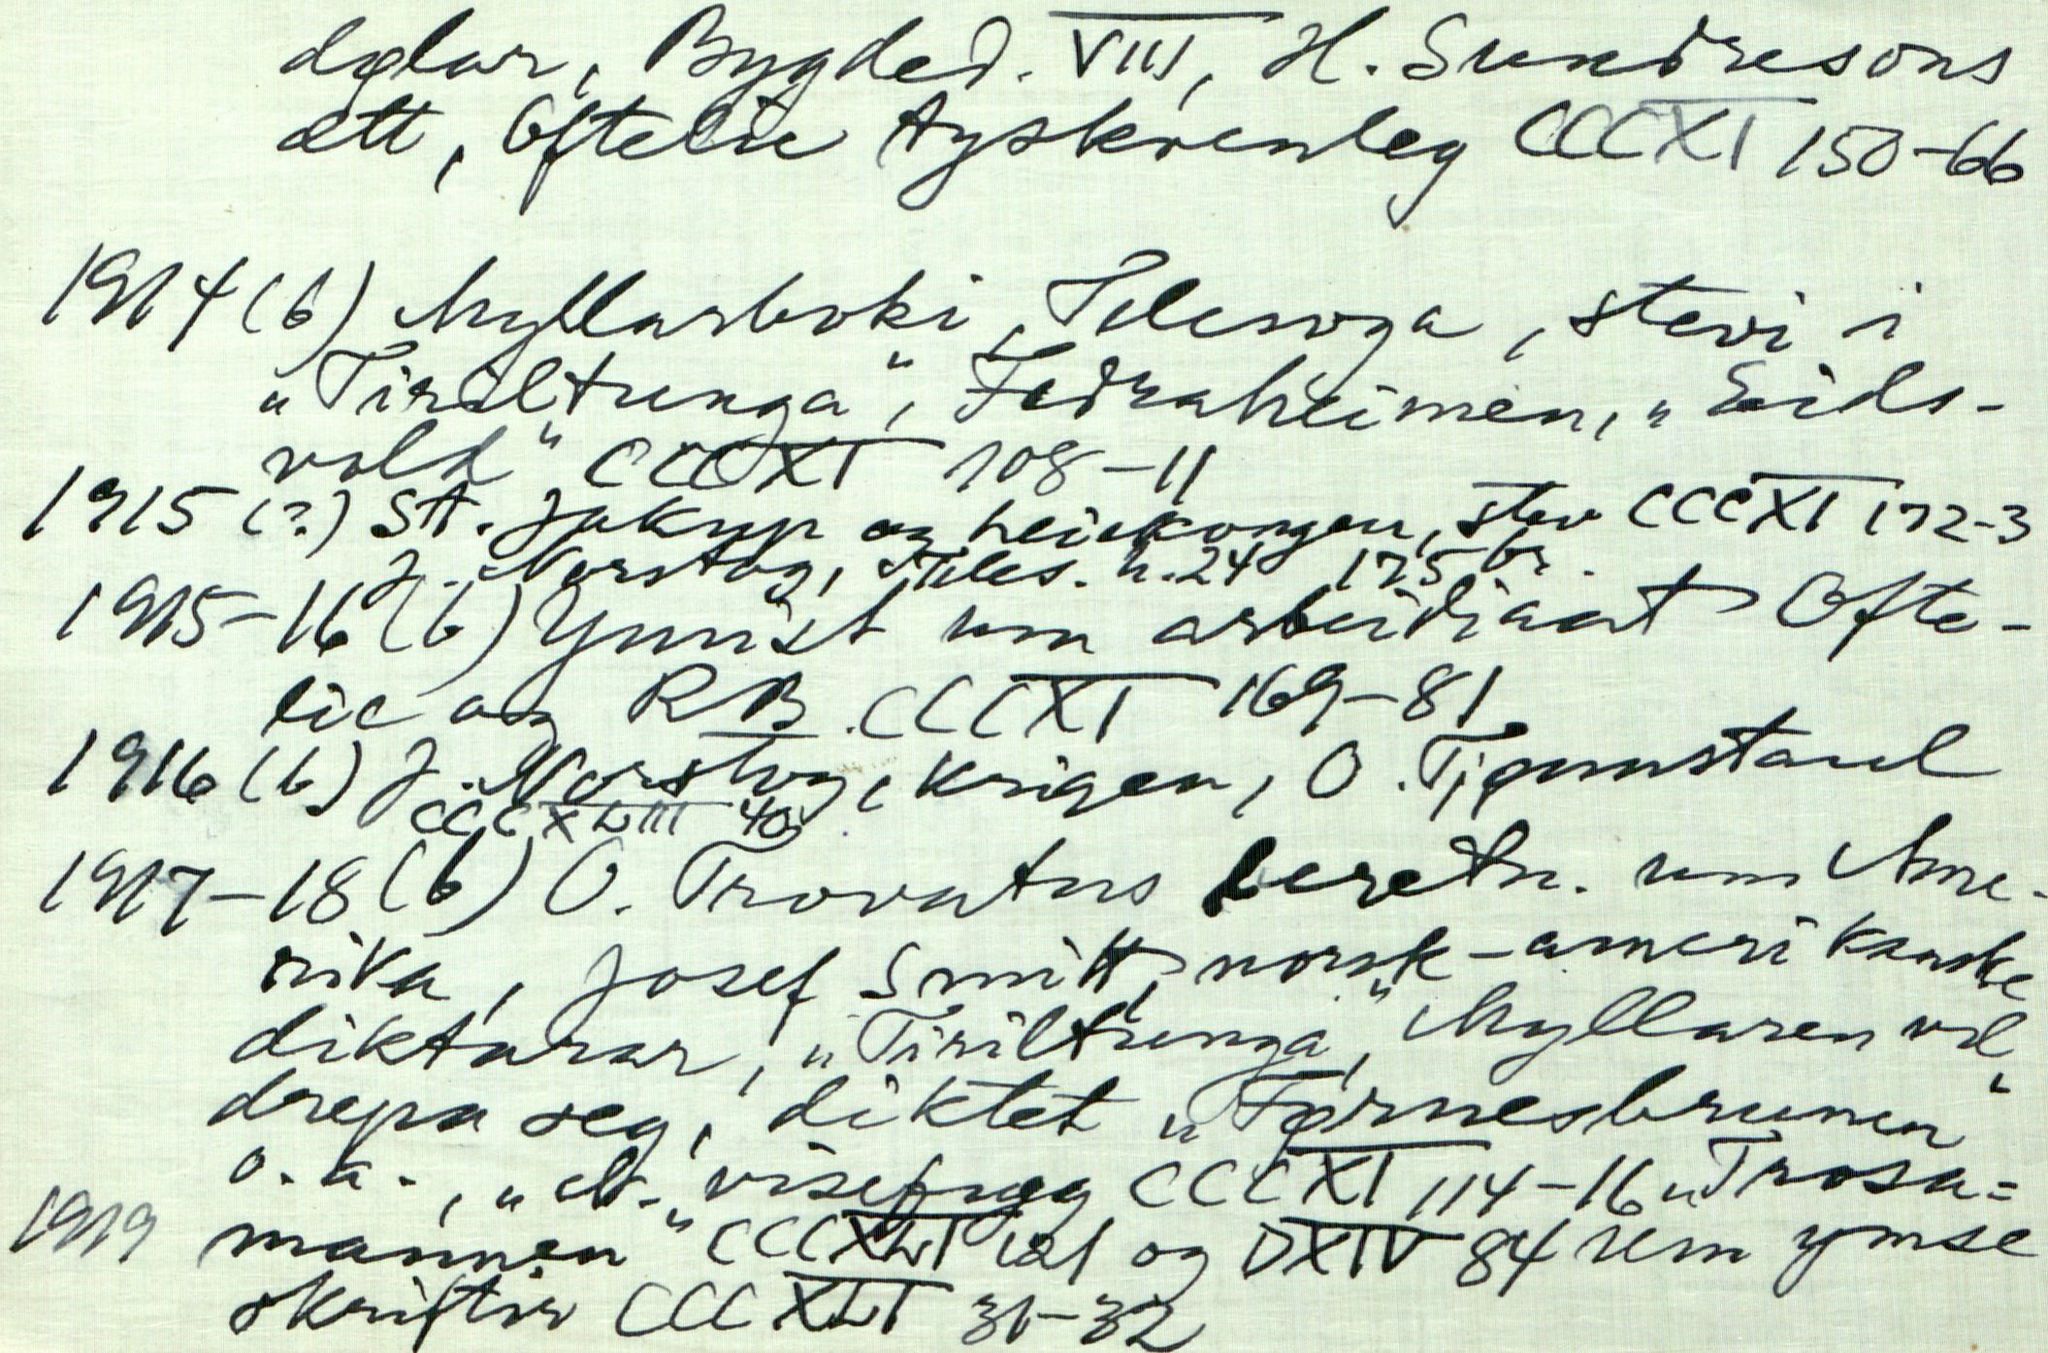 dølar, Bygded. VIII, H. Sundresons
ætt, Oftelie tyskvenleg CCCXI 150-66
1914 (b) Myllarboki, Telesoga, stevi i
„Tiriltunga“, Fedraheimen, „Eids-
vold“ CCCXI 108-11
1915 (?) St. Jakup og leikvongen, stev CCCXI 172-3
J. Norstog, Teles. h. 24 175 br.
1915-16 (b) Ymist um arbeidi aat Ofte-
lie og RB. CCCXI 169-81
1916 (b) J. Norstog, krigen, O. Tjønnstaul
CCCXLIII 40
1917-18 (b) O. Trovatns beretn. um Ame-
rika, Josef Smitt, norsk-amerikanske
diktarar, „Tiriltunga“, Myllaren vil
drepa seg, diktet „Førnesbrunen“
o.a., „N.“ CCCXI 114-16 „Trosa=
1919 mannen“ CCCXLI 121 og DXIV 84 um ymse
skrifter CCCXLI 31-32